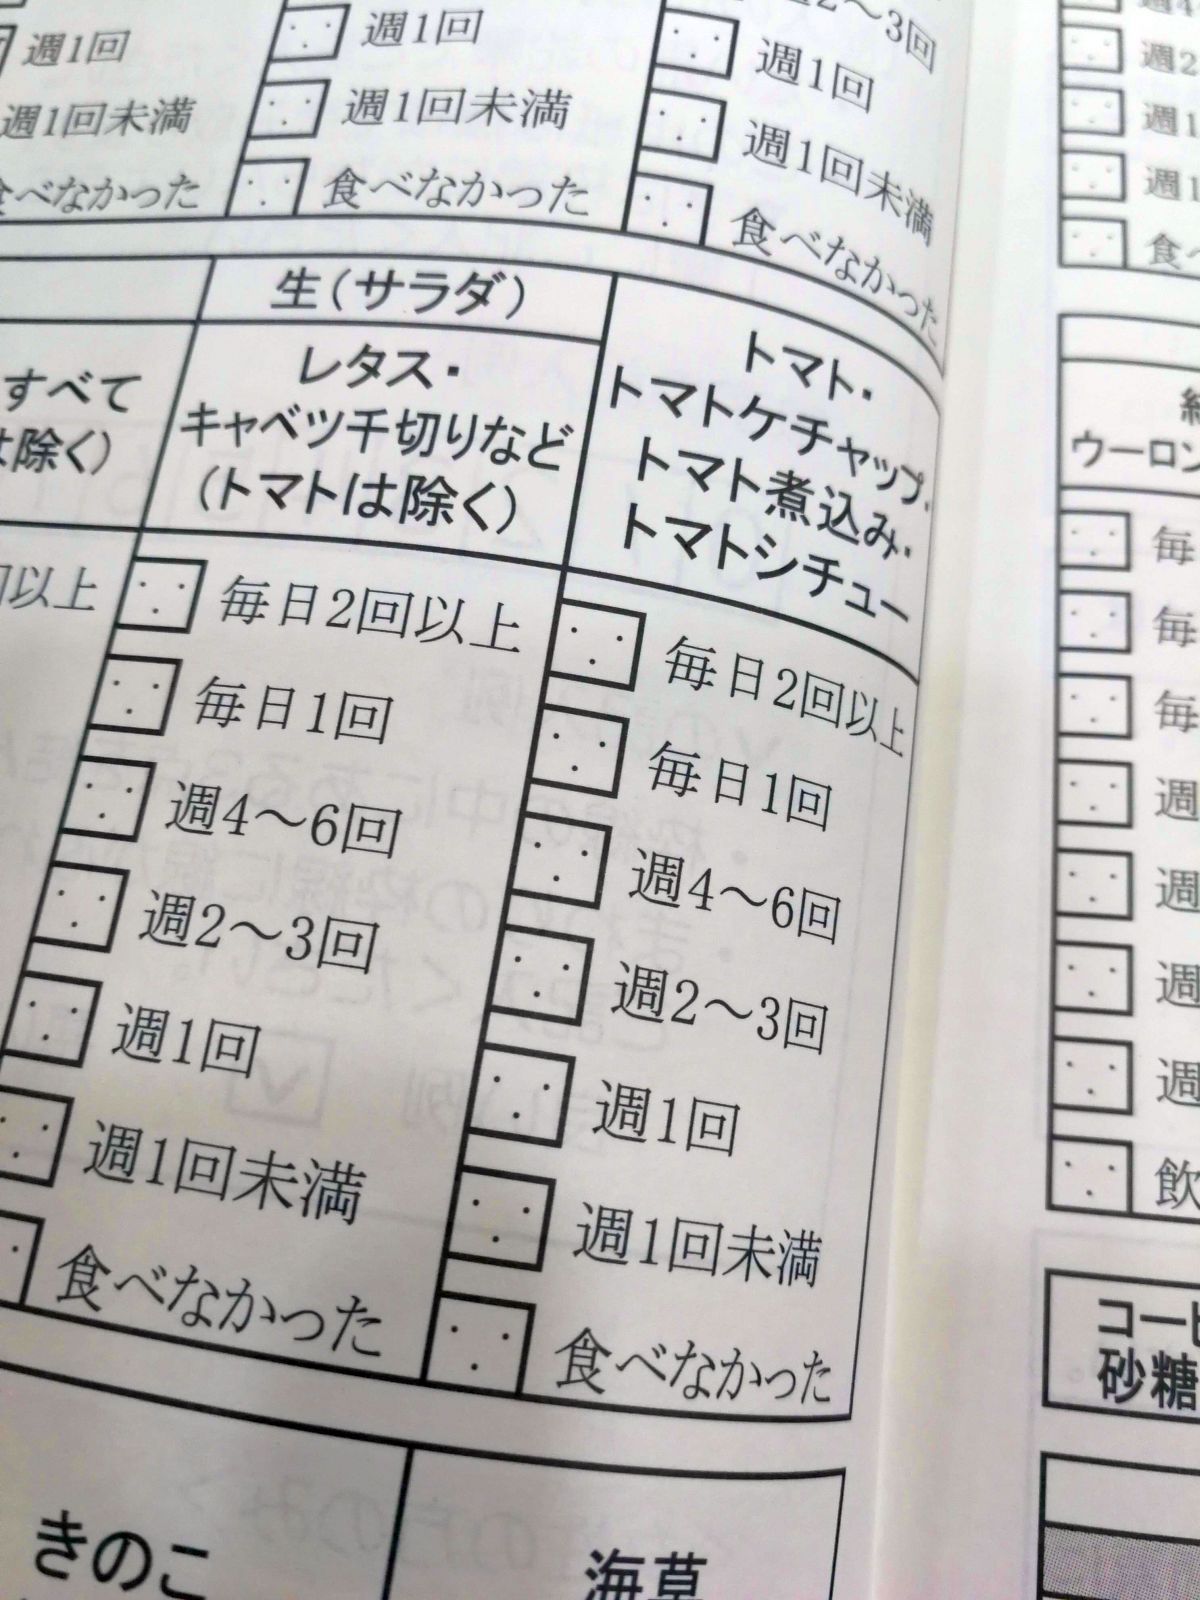 週1回
週1回未満
食べなかった
週1回
週1回未満
食べなかった
2〜3回
週1回
週1回未満
食べなかった
すべて
は除く)
回以上
生(サラダ)
レタス・
キャベツ千切りなど
(トマトは除く)
毎日2回以上
毎日1回
週4〜6回
週2〜3回
週1回
週1回未満
食べなかった
トマト・
トマトケチャップ・
トマト煮込み・
トマトシチュー
毎日2回以上
毎日1回
週4〜6回
週2〜3回
週1回
週1回未満
食べなかった
きのこ
海草
週2
週1
週1
食べ
ウーロン
毎
毎
毎
週
週
週
週
飲
コーヒ
砂糖